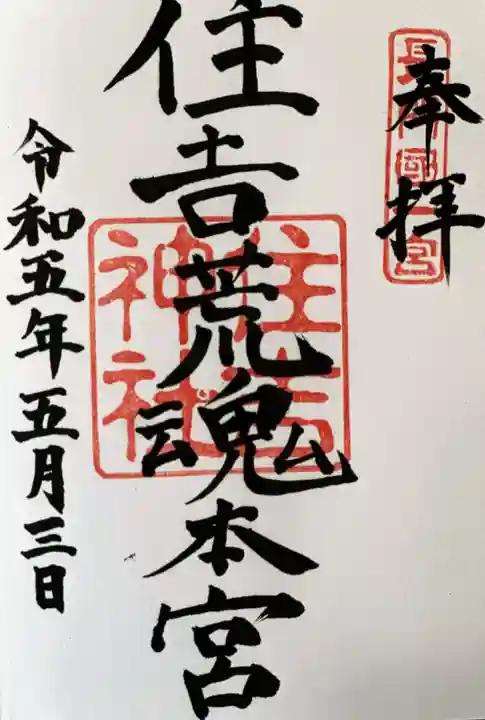 奉拝
長門國一宮
住吉荒魂本宮
住吉神社
令和五年五月三日